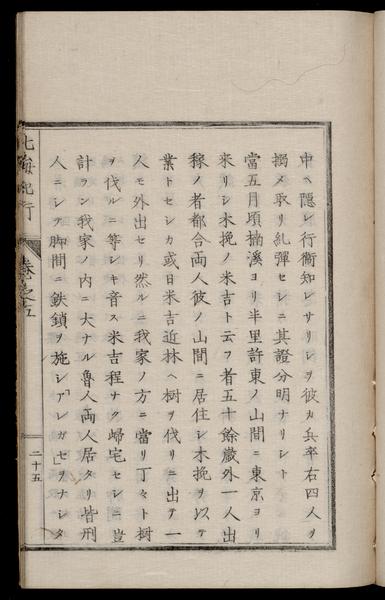 中ヘ隠レ行衞知レサリシヲ彼カ兵卒右四人ヲ
搦メ取リ糺彈セシニ其證分明ナリシト
當五月頃楠溪ヨリ半里許東ノ山間ニ東京ヨリ
來リシ木挽ノ米吉ト云フ者五十餘歳外一人出
稼ノ者都合両人彼ノ山間ニ居住シ木挽ヲ以テ
業トセシカ或日米吉近林ヘ樹ヲ伐リニ出テ一
人モ外出セリ然ルニ我家ノ方ニ當リ丁々ト樹
ヲ伐ルニ等シキ音ス米吉程ナク帰宅セシニ豈
計ラン我家ノ内ニ大ナル魯人両人居タリ皆刑
人ニシテ脚間ニ鉄鎖ヲ施シアレガセヲナシタ
北海紀行
巻之五
二十五